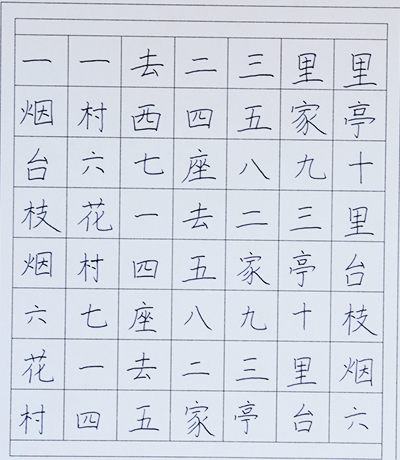 一一去二三里里
烟村西四五家亭
台六七座八九十
枝花一去二三里
烟村四五家亭台
六七座八九十枝
花一去二三里烟
村四五家亭台六